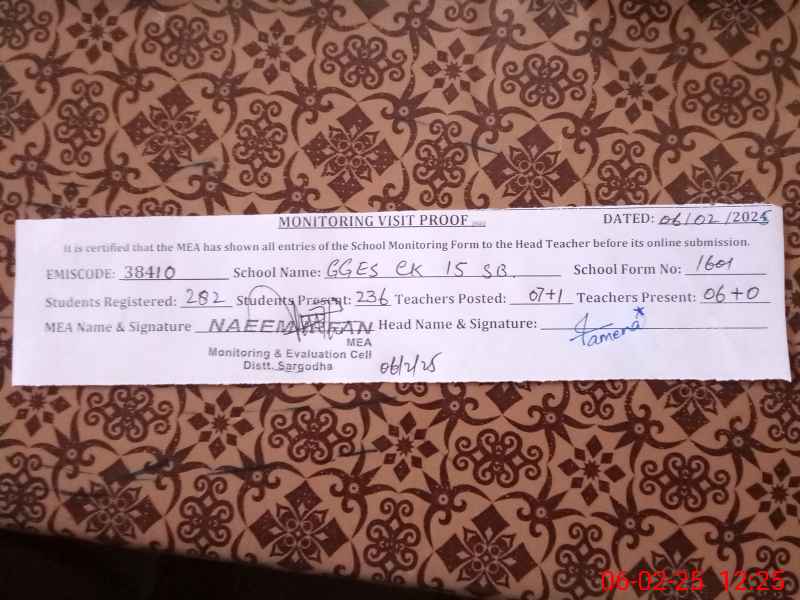 MONITORING VISIT PROOF DATED: 06/02/2025
It is certified that the MEA has shown all entries of the School Monitoring Form to the Head Teacher before its online submission.
EMISCODE: 38410 School Name: GGES CK 15 SB. School Form No: 1601
Students Registered: 282 Students Present: 236 Teachers Posted: 07+1 Teachers Present: 06+0
MEA Name & Signature NAEEM KHAN Head Name & Signature: Tamena
MEA
Monitoring & Evaluation Cell
Distt. Sargodha 06/2/25
06-02-25 12:25